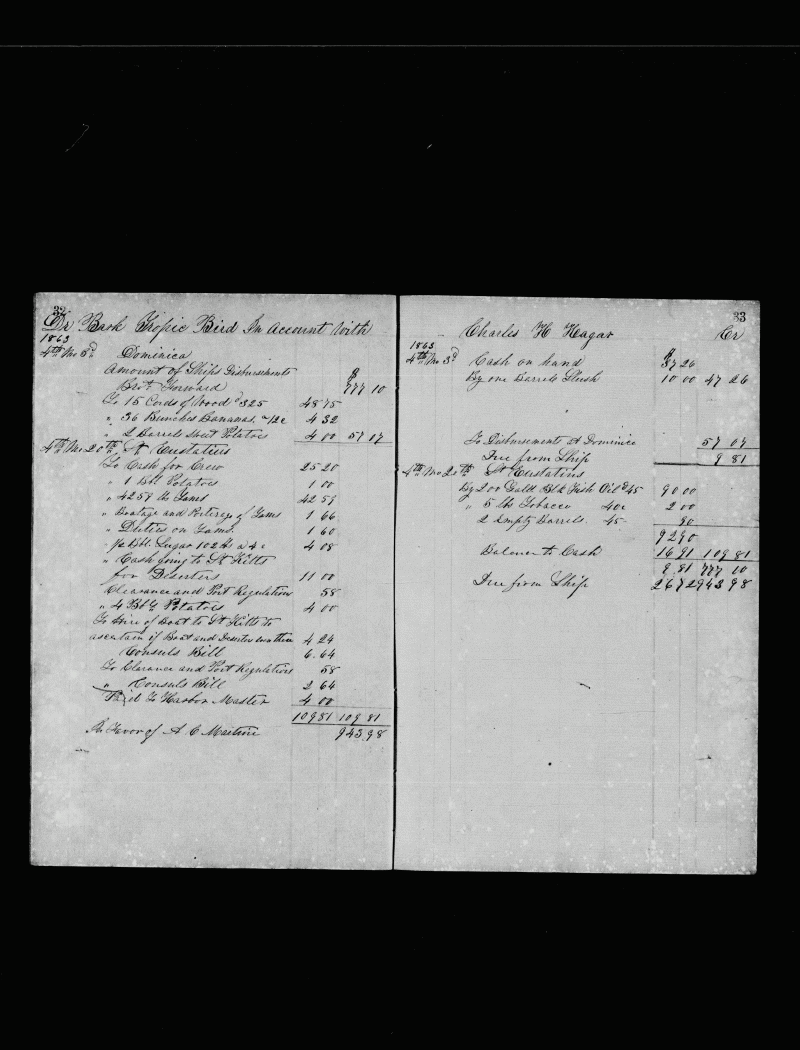 32
Dr Bark Tropic Bird In Account With
1863
4th Mo 3d Dominica
Amount of Ships Disbursements $
Brot Forward 777 10
To 15 Cords of Wood $3 25 48 75
" 36 Bunches Bananas. 12c 4 32
" 2 Barrels Sweet Potatoes 4 00 57 07
4th Mo 20th St Eustatius
To Cash for Crew 25 20
" 1 Bbl Potatoes 1 00
" 4259 lbs Yams 42 59
" Boatage and Porterage of Yams 1 66
" Duties on Yams. 1 60
" 1/2 Bbl. Sugar 102 lbs a 4c 4 08
" Cash going to St Kitts
for Deserters 11 00
Clearance and Port Regulation 58
" 4 Bbls Potatoes 4 00
To Hire of Boat to St Kitts to
ascertain if Boat and Deserters 4 24
Consuls Bill 6.64
To Clearance and Port Regulations 58
" Consuls Bill 2 64
Paid To Harbor Master 4 00
109 81 109 81
In Favor of A C 943 98
33
Charles H Hagar Cr
1863
4th Mo 3d Cash on hand $37 26
By one Barrels Slush 10 00 47 26
To Disbursements at Dominica 57 07
Due from Ship 9 81
4th Mo 20th St Eustatius
By 200 Galls Blk Fish Oil $45 90 00
" 5 lbs Tobacco 40c 2 00
2 Empty Barrels. 45 90
92 90
Balance to Cash 16 91 109 81
9 81 777 10
Due from Ship 26 72 943 98